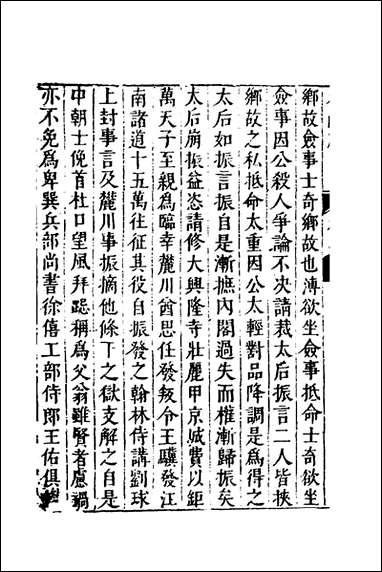 鄉故僉事士奇鄉故也溥欲坐僉事抵命士奇欲坐
僉事因公殺人爭論不決請裁太后振言二人皆挾
鄉故之私抵命太重因公太輕對品降調是爲得之
太后如振言振自是漸撫內閣過失而權漸歸振矣
太后崩振益恣請修大興隆寺壯麗甲京城費以鉅
萬天子至親爲臨幸麓川酋思任發叛令王驥發江
南諸道十五萬往征其役自振發之翰林侍講劉球
上封事言及麓川事振摘他條下之獄支解之自是
中朝士俛首杜口望風拜跽稱爲父翁雖賢者慮禍
亦不免爲卑巽兵部尚書徐僖工部侍郎王佑俱